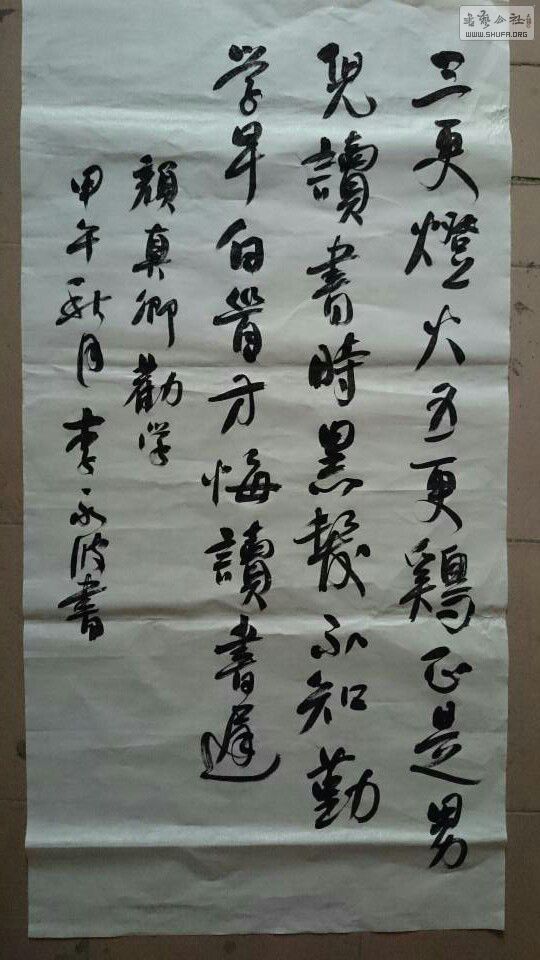 三更燈火五更鷄正是男
兒讀書時黑髮不知勤
学早白首方悔讀書遲
顏真卿勸学
甲午秋月李永波書
書藝公社
WWW.SHUFA.ORG